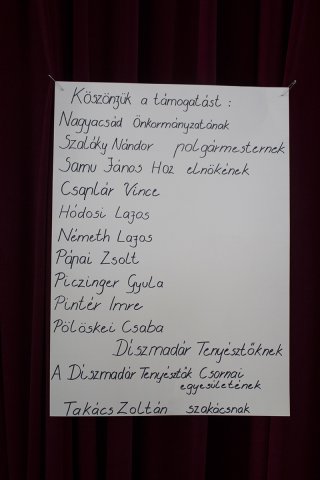 Köszönjük a támogatást :
Nagyacsád Önkormányzatának
Szalóky Nándor polgármesternek
Samu János Hoz elnökének
Csaplár Vince
Hódosi Lajos
Németh Lajos
Pápai Zsolt
Piczinger Gyula
Pintér Imre
Pölöskei Csaba
Díszmadár Tenyésztőknek
A Díszmadár Tenyésztők Csornai
egyesületének
Takács Zoltán szakácsnak